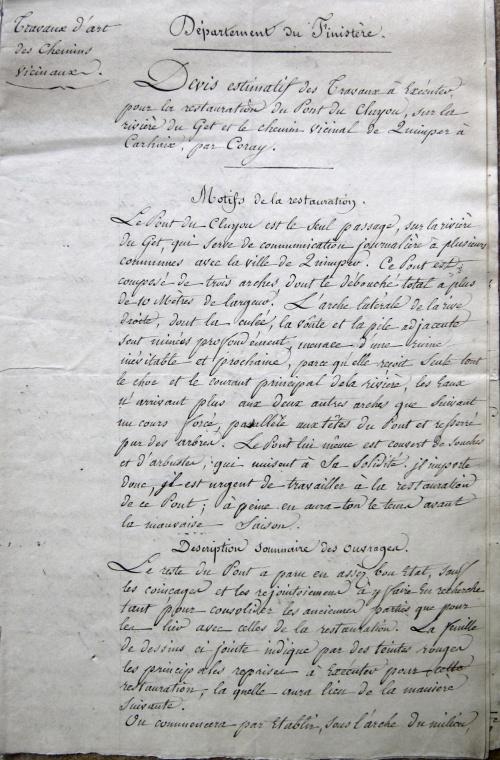 Travaux d'art
des Chemins
vicinaux.
Département du Finistère.
Devis estimatif des Travaux à Exécuter
pour la restauration du Pont du Cluyou, sur la
rivière du Get et le chemin vicinal de Quimper à
Carhaix, par Coray.
Motifs de la restauration.
Le Pont du Cluyou est le seul passage, sur la rivière
du Get, qui serve de communication journalière à plusieurs
communes avec la ville de Quimper. Ce Pont est
composé de trois arches, dont le débouché total a plus
de 10 Mètres de largeur. L'arche latérale de la rive
droite, dont la culée, la voûte et la pile adjacente
sont minées profondément, menace d'une ruine
inévitable et prochaine, parce qu'elle reçoit seule tout
le choc et le courant principal de la rivière, les eaux
n'arrivant plus aux deux autres arches que suivant
un cours forcé, parallèle aux têtes du Pont et resserré
par des arbres. Le Pont lui même est couvert de souches
et d'arbustes, qui nuisent à sa solidité. il importe
donc, il est urgent de travailler à la restauration
de ce Pont; à peine en aura-t-on le tems avant
la mauvaise saison.
Description sommaire des ouvrages.
Le reste du Pont a paru en assez bon Etat, sauf
les coinçages et les rejointoiement à y faire en recherche
tant pour consolider les anciennes parties que pour
les lier avec celles de la restauration. La feuille
de dessins ci jointe indique par des teintes rouges
les principales reprises à Exécuter pour cette
restauration, la quelle aura lieu de la manière
suivante.
On commencera par Etablir, sous l'arche du milieu,